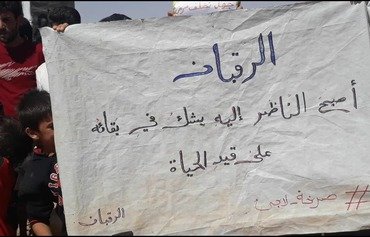 الرقبان
أصبح الناظر إليه يشك في بقائه
على قيد الحياة
# صرخة_لاجئ
الرقبان